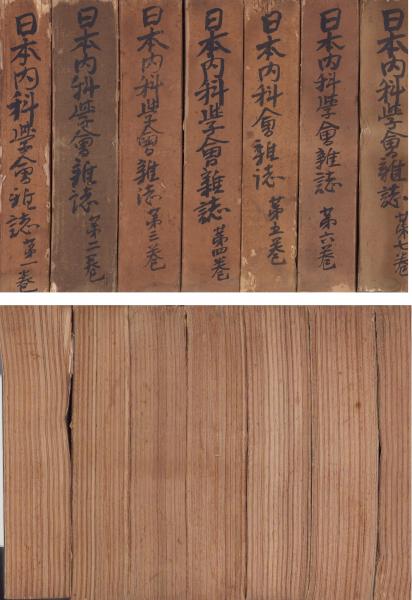 日本内科学會雑誌 第一巻
日本内科学會雑誌 第二巻
日本内科学會雑誌 第三巻
日本内科学會雑誌 第四巻
日本内科学會雑誌 第五巻
日本内科学會雑誌 第六巻
日本内科学會雑誌 第七巻